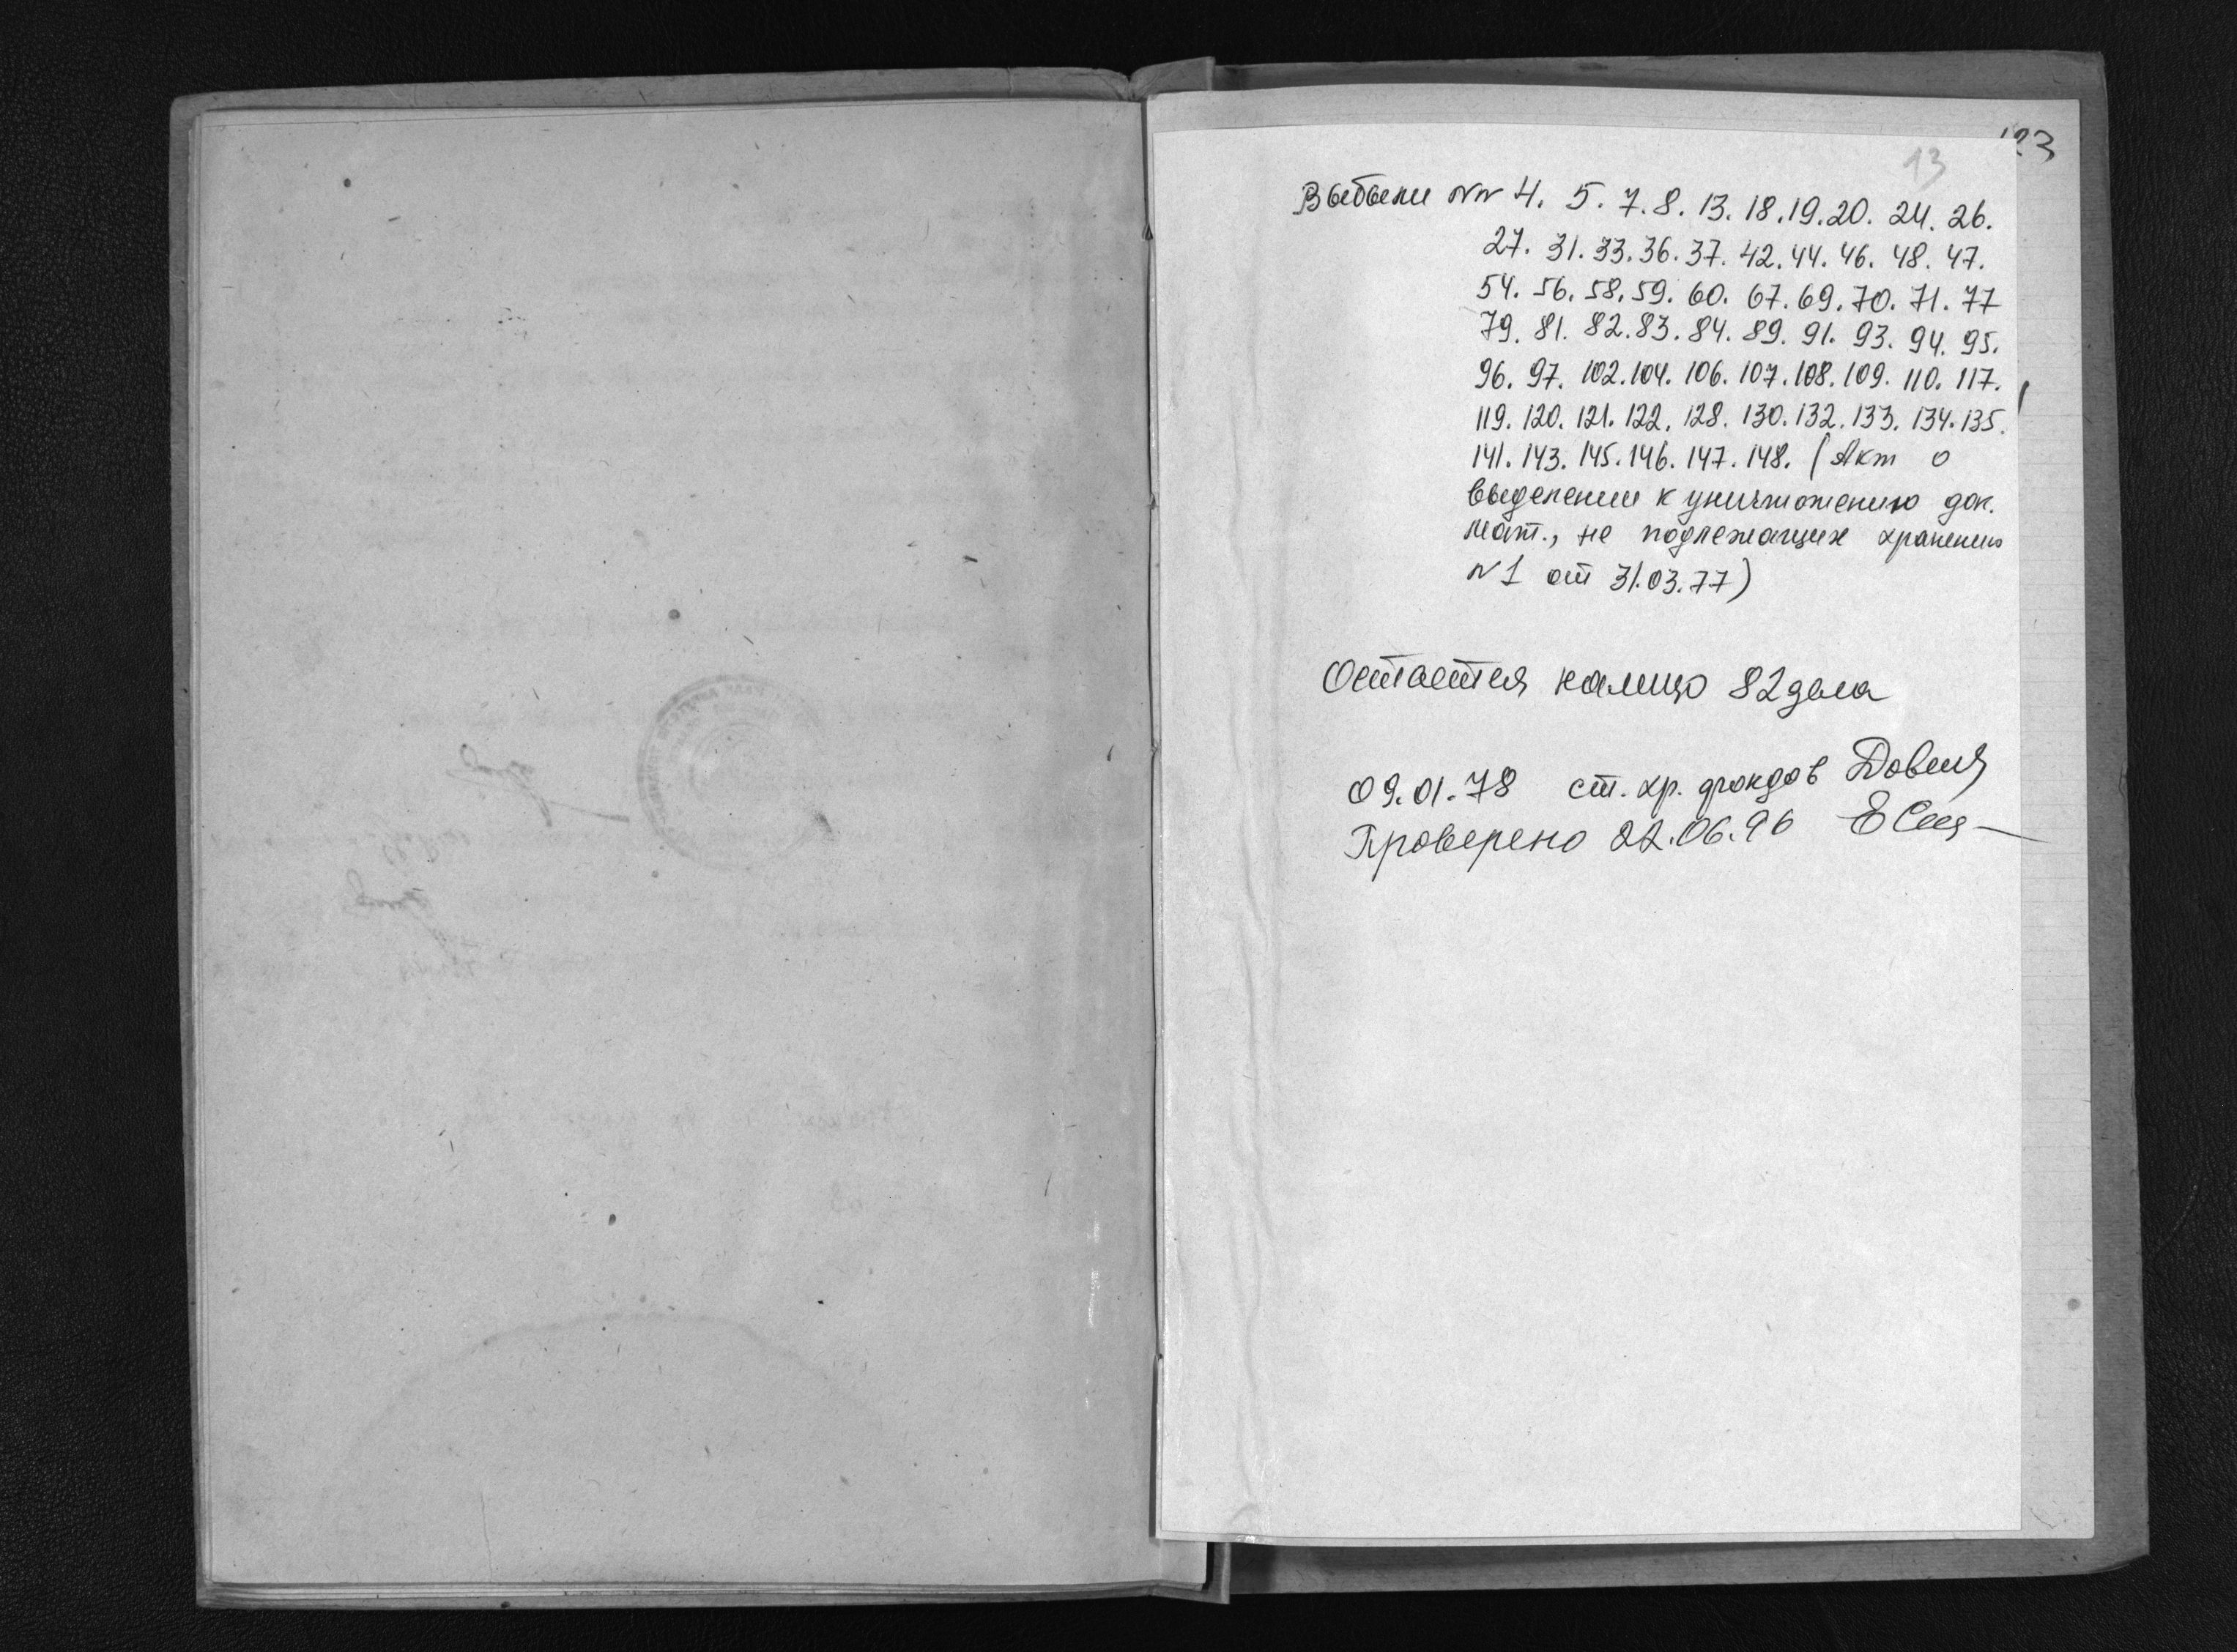 13
23
Выбыли NN 4. 5. 7. 8. 13. 18. 19. 20. 24. 26.
27. 31. 33. 36. 37. 42. 44. 46. 48. 47.
54. 56. 58. 59. 60. 67. 69. 70. 71. 77
79. 81. 82. 83. 84. 89. 91. 93. 94. 95.
96. 97. 102. 104. 106. 107. 108. 109. 110. 117.
119. 120. 121. 122. 128. 130. 132. 133. 134. 135.
141. 143. 145. 146. 147. 148. (Акт о
выделении к уничтожению док.
мат., не подлежащих хранению
N 1 от 31.03.77)
Остается налицо 82 дела
09.01.78 ст. хр. фондов
Проверено 22.06.96